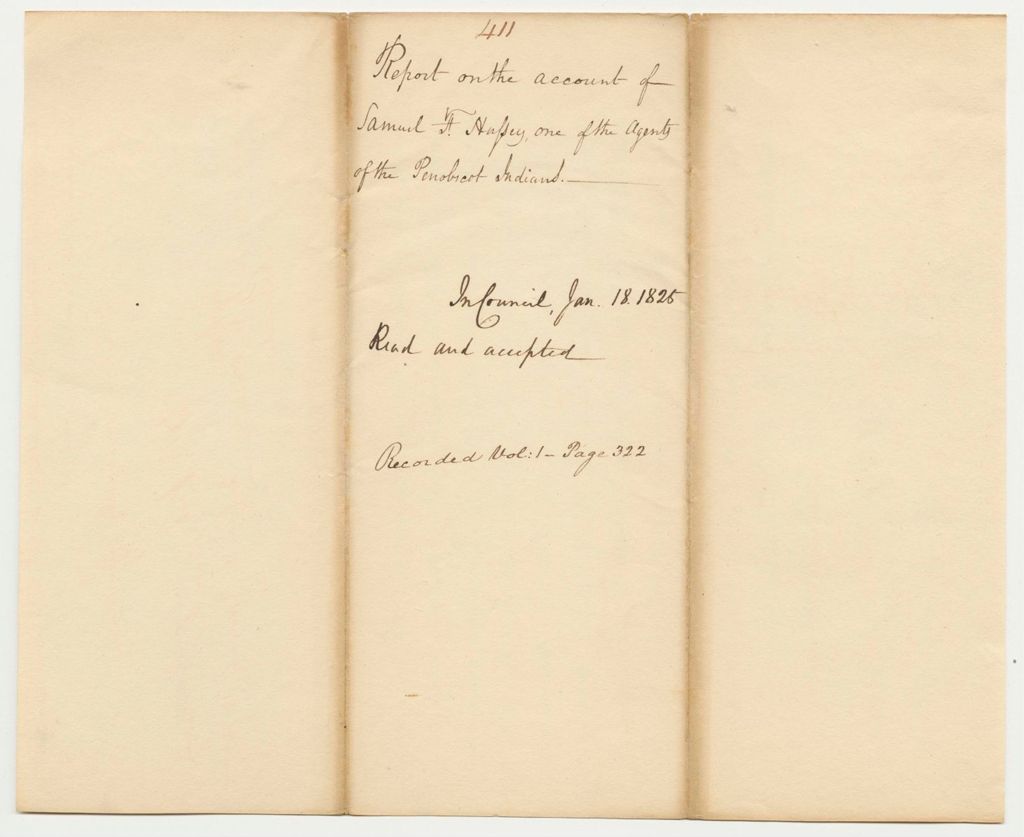 411
Report on the account of
Samuel F. Hussey, one of the Agents
of the Penobscot Indians.
In Council, Jan. 18. 1825
Read and accepted
Recorded Vol: 1 - Page 322